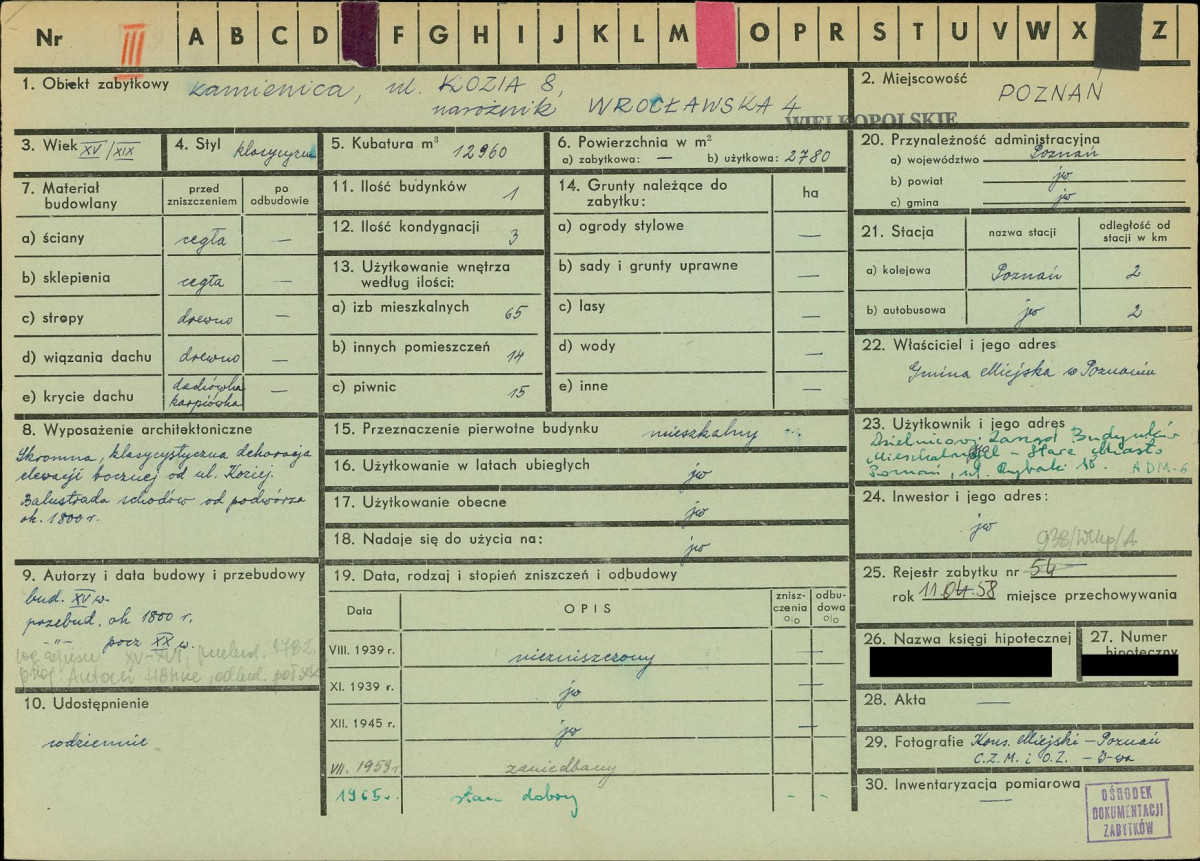 Nr III A B C D F G H I J K L M O P R S T U V W X Z
1. Obiekt zabytkowy kamienica, ul. KOZIA 8,
narożnik WROCŁAWSKA 4
2. Miejscowość
POZNAŃ
WIELKOPOLSKIE
3. Wiek XV/XIX
4. Styl klasycyzm
5. Kubatura m³ 12960
6. Powierzchnia w m²
a) zabytkowa: — b) użytkowa: 2780
20. Przynależność administracyjna
a) województwo Poznań
b) powiat jw
c) gmina jw
7. Materiał budowlany
przed zniszczeniem
po odbudowie
a) ściany cegła —
b) sklepienia cegła —
c) stropy drewno —
d) wiązania dachu drewno —
e) krycie dachu dachówka karpiówka —
11. Ilość budynków 1
12. Ilość kondygnacji 3
13. Użytkowanie wnętrza
według ilości:
a) izb mieszkalnych 65
b) innych pomieszczeń 14
c) piwnic 15
14. Grunty należące do
zabytku:
ha
a) ogrody stylowe —
b) sady i grunty uprawne —
c) lasy —
d) wody —
e) inne —
21. Stacja
nazwa stacji
odległość od
stacji w km
a) kolejowa Poznań 2
b) autobusowa jw 2
22. Właściciel i jego adres
Gmina Miejska w Poznaniu
8. Wyposażenie architektoniczne
Skromna, klasycystyczna dekoracja
elewacji bocznej od ul. Koziej.
Balustrada schodów od podwórza
ok. 1800 r.
15. Przeznaczenie pierwotne budynku mieszkalny
16. Użytkowanie w latach ubiegłych jw
17. Użytkowanie obecne jw
18. Nadaje się do użycia na: jw
23. Użytkownik i jego adres
Dzielnicowy Zarząd Budynków
Mieszkalnych - Stare Miasto
Poznań, ul. Rybaki 18. ADM-6
24. Inwestor i jego adres:
jw
938/Wlkp/A
25. Rejestr zabytku nr 54
rok 11.04.58 miejsce przechowywania
9. Autorzy i data budowy i przebudowy
bud. XV w.
przebud. ok 1800 r.
-"- pocz XX w.
XV-XVI, przebud. 1782,
proj. Antoni Höhne, odbud.
19. Data, rodzaj i stopień zniszczeń i odbudowy
Data
OPIS
znisz-
czenia
%
odbu-
dowa
%
VIII. 1939 r. niezniszczony —
XI. 1939 r. jw —
XII. 1945 r. jw —
VII. 1959 r zaniedbany —
1965 r. stan dobry - -
26. Nazwa księgi hipotecznej
27. Numer
hipoteczny
10. Udostępnienie
codziennie
28. Akta —
29. Fotografie Kons. Miejski - Poznań
C.Z.M. i O.Z. - W-wa
30. Inwentaryzacja pomiarowa
—
OŚRODEK
DOKUMENTACJI
ZABYTKÓW